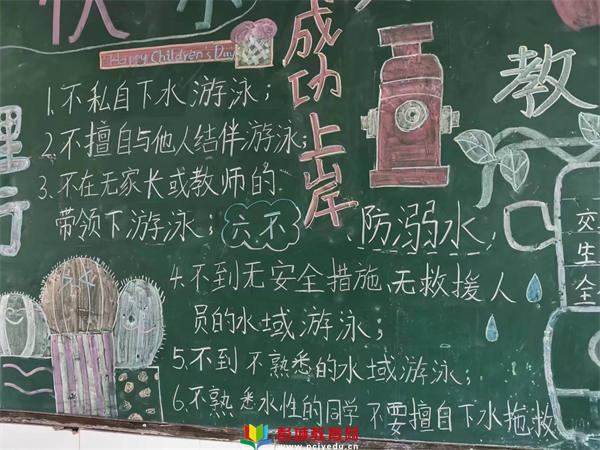 快乐
Happy Children's Day
成功上岸
教
1.不私自下水游泳；
2.不擅自与他人结伴游泳；
3.不在无家长或教师的
带领下游泳；
六不
防溺水
4.不到无安全措施、无救援人
员的水域游泳；
5.不到不熟悉的水域游泳；
6.不熟悉水性的同学不要擅自下水拖救
交
生
全
彭城教育网
www.pcjyedu.cn